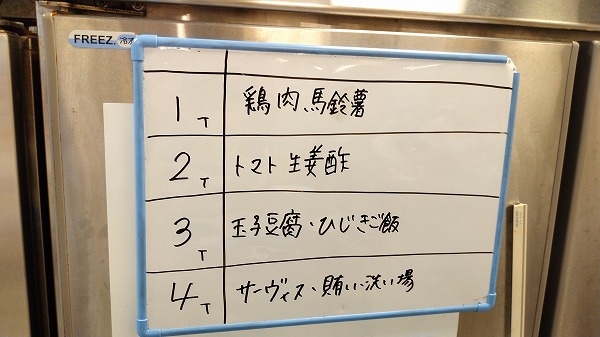 FREEZ. 冷凍
1T 鶏肉、馬鈴薯
2T トマト生姜酢
3T 玉子豆腐・ひじきご飯
4T サーヴィス・賄い洗い場